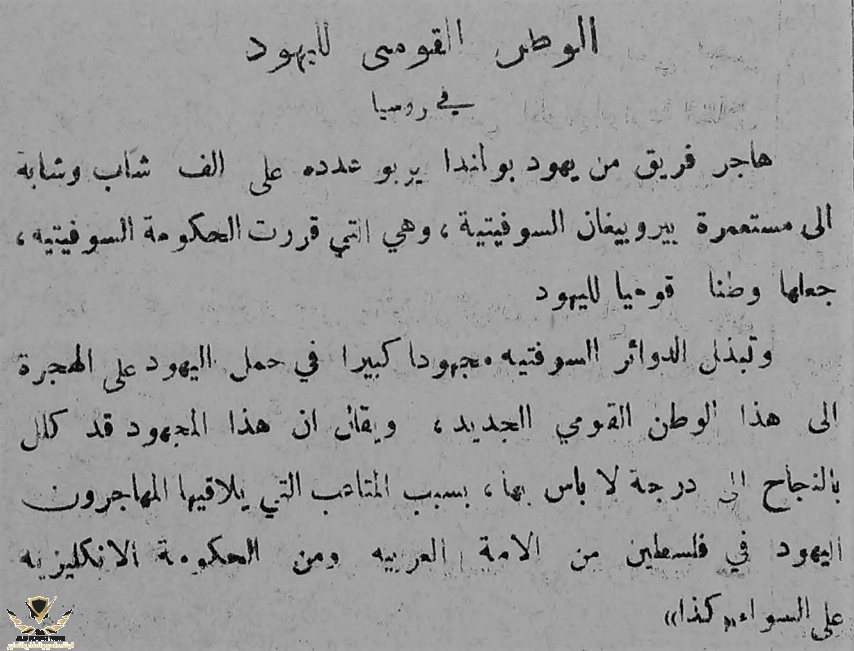 الوطن القومى لليهود
في روسيا
هاجر فريق من يهود بولندا يربو عدده على الف شاب وشابة
الى مستعمرة بيروبيغان السوفيتية ، وهي التي قررت الحكومة السوفيتيه ،
جعلها وطنا قوميا لليهود
وتبذل الدوائر السوفتيه مجهودا كبيرا في حمل اليهود على الهجرة
الى هذا الوطن القومي الجديد ، ويقال ان هذا المجهود قد كلل
بالنجاح الى درجة لا باس بها ، بسبب المتاعب التي يلاقيها المهاجرون
اليهود في فلسطين من الامة العربيه ومن الحكومة الانكليزيه
على السواء «كذا»